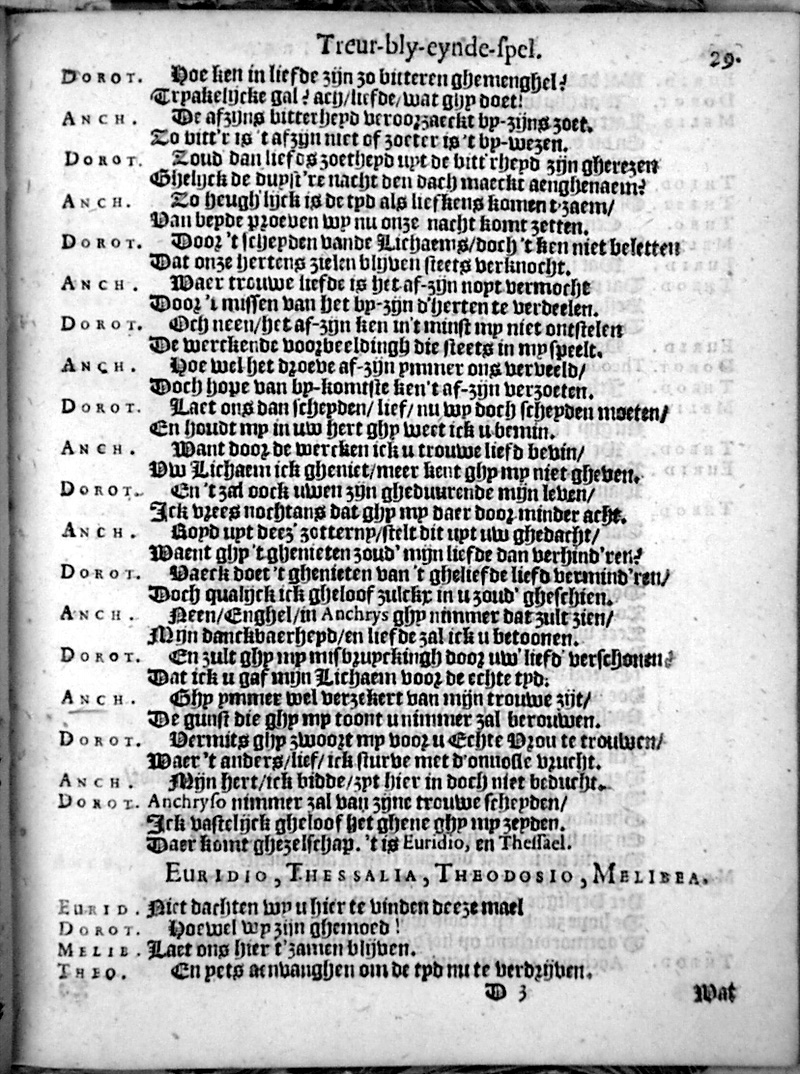 Treur-bly-eynde-spel. 29.
DOROT. Hoe ken in liefde zijn zo bitteren ghemenghel?
Tryakelijcke gal? ach/liefde/wat ghy doet!
ANCH. De afzijns bitterheyd veroorzaeckt by-zijns zoet.
Zo bitt'r is 't afzijn niet of zoeter is 't by-wezen.
DOROT. Zoud' dan liefdes zoetheyd uyt de bitt'rheyd zijn gherezen
Ghelijck de duyst're nacht den dach maeckt aenghenaem?
ANCH. Zo heugh'lijck is de tyd als liefkens komen t'zaem/
Van beyde proeven wy nu onze nacht komt zetten.
DOROT. Door 't scheyden vande Lichaems/doch 't ken niet beletten
Dat onze hertens zielen blijven steets verknocht.
ANCH. Waer trouwe liefde is het af-zijn noyt vermocht
Door 't missen van het by-zijn d'herten te verdeelen.
DOROT. Och neen/het af-zijn ken in't minst my niet ontstelen
De werckende voorbeeldingh die steets in my speelt.
ANCH. Hoe wel het droeve af-zijn ymmer ons verveeld/
Doch hope van by-komste ken't af-zijn verzoeten.
DOROT. Laet ons dan scheyden/ lief/ nu wy doch scheyden moeten/
En houdt my in uw hert ghy weet ick u bemin.
ANCH. Want door de wercken ick u trouwe liefd bevin/
Uw Lichaem ick gheniet/meer kent ghy my niet gheven.
DOROT. En 't zal oock uwen zijn gheduurende mijn leven/
Ick vrees nochtans dat ghy my daer door minder acht.
ANCH. Boyd uyt deez' zotterny/stelt dit uyt uw ghedacht/
Waent ghy 't ghenieten zoud' mijn liefde dan verhind'ren?
DOROT. Vaeck doet 't ghenieten van 't gheliefde liefd vermind'ren/
Doch qualijck ick gheloof zulckx in u zoud' gheschien.
ANCH. Neen/Enghel/in Anchrys ghy nimmer dat zult zien/
Mijn danckbaerheyd/en liefde zal ick u betoonen.
DOROT. En zult ghy my misbruyckingh door uw' liefd' verschonen?
Dat ick u gaf mijn Lichaem voor de echte tyd.
ANCH. Ghy ymmer wel verzekert van mijn trouwe zijt/
De gunst die ghy my toont u nimmer zal berouwen.
DOROT. Vermits ghy zwoort my voor u Echte Vrou te trouwen/
Waer 't anders/lief/ick sturve met d'onnosle vrucht.
ANCH. Mijn hert/ick bidde/zyt hier in doch niet beducht.
DOROT. Anchryso nimmer zal van zijne trouwe scheyden/
Ick vastelijck gheloof het ghene ghy my zeyden.
Daer komt ghezelschap. 't is Euridio, en Thessael.
EURIDIO, THESSALIA, THEODOSIO, MELIBEA.
EURID. Niet dachten wy u hier te vinden deeze mael
DOROT. Hoe wel wy zijn ghemoed!
MELIE. Laet ons hier t'zamen blijven.
THEO. En yets aenvanghen om de tyd nu te verdrijven.
D 3 Wat